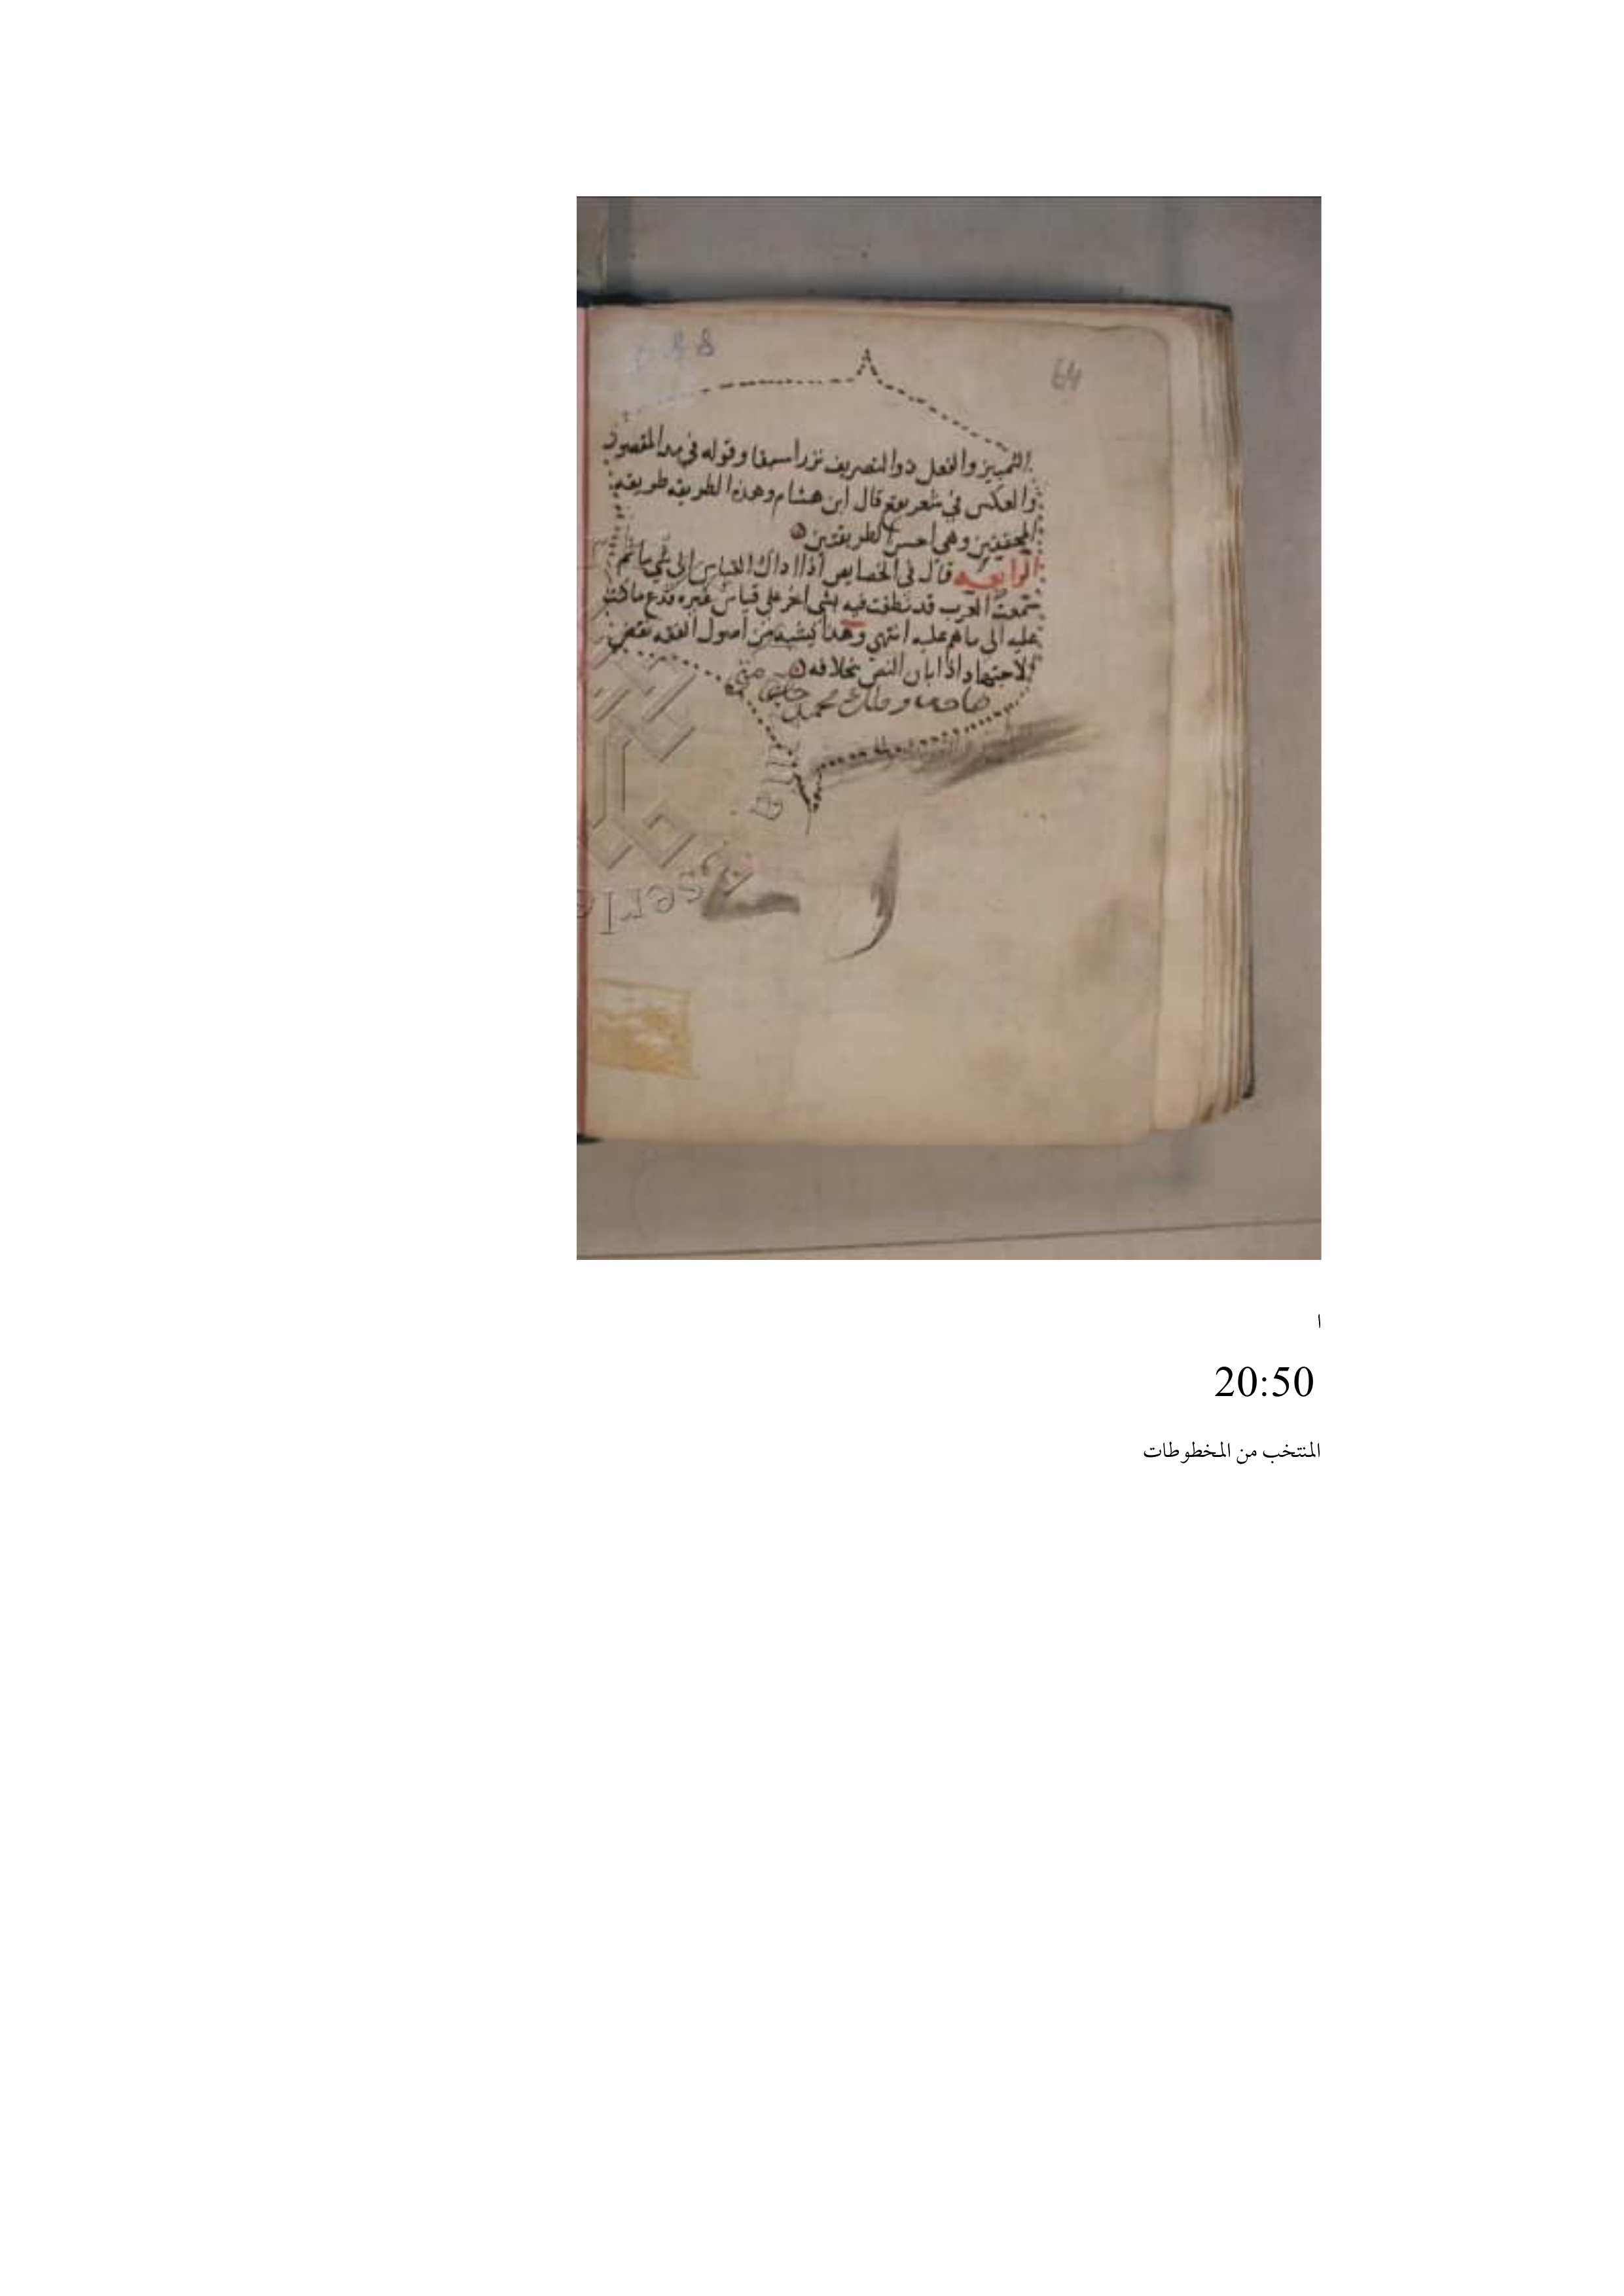 688
64
التمييز والفعل ذو التصريف نزرا سبقا وقوله في مد المقصور
والعكس في شعر يقع قال ابن هشام وهذه الطريقه طريقه
المحققين وهي احسن الطريقتين
الرابعه قال في الخصايص اذا اداك القياس الى شي ما ثم
سمعت العرب قد نطقت فيه بشي اخر على قياس غيره فدع ما كنت
عليه الى ما هم عليه انتهي وهذا يشبه من اصول الفقه نقض
الاجتهاد اذا بان النص بخلافه
صاحب ومالك محمد
ا
20:50
المنتخب من المخطوطات